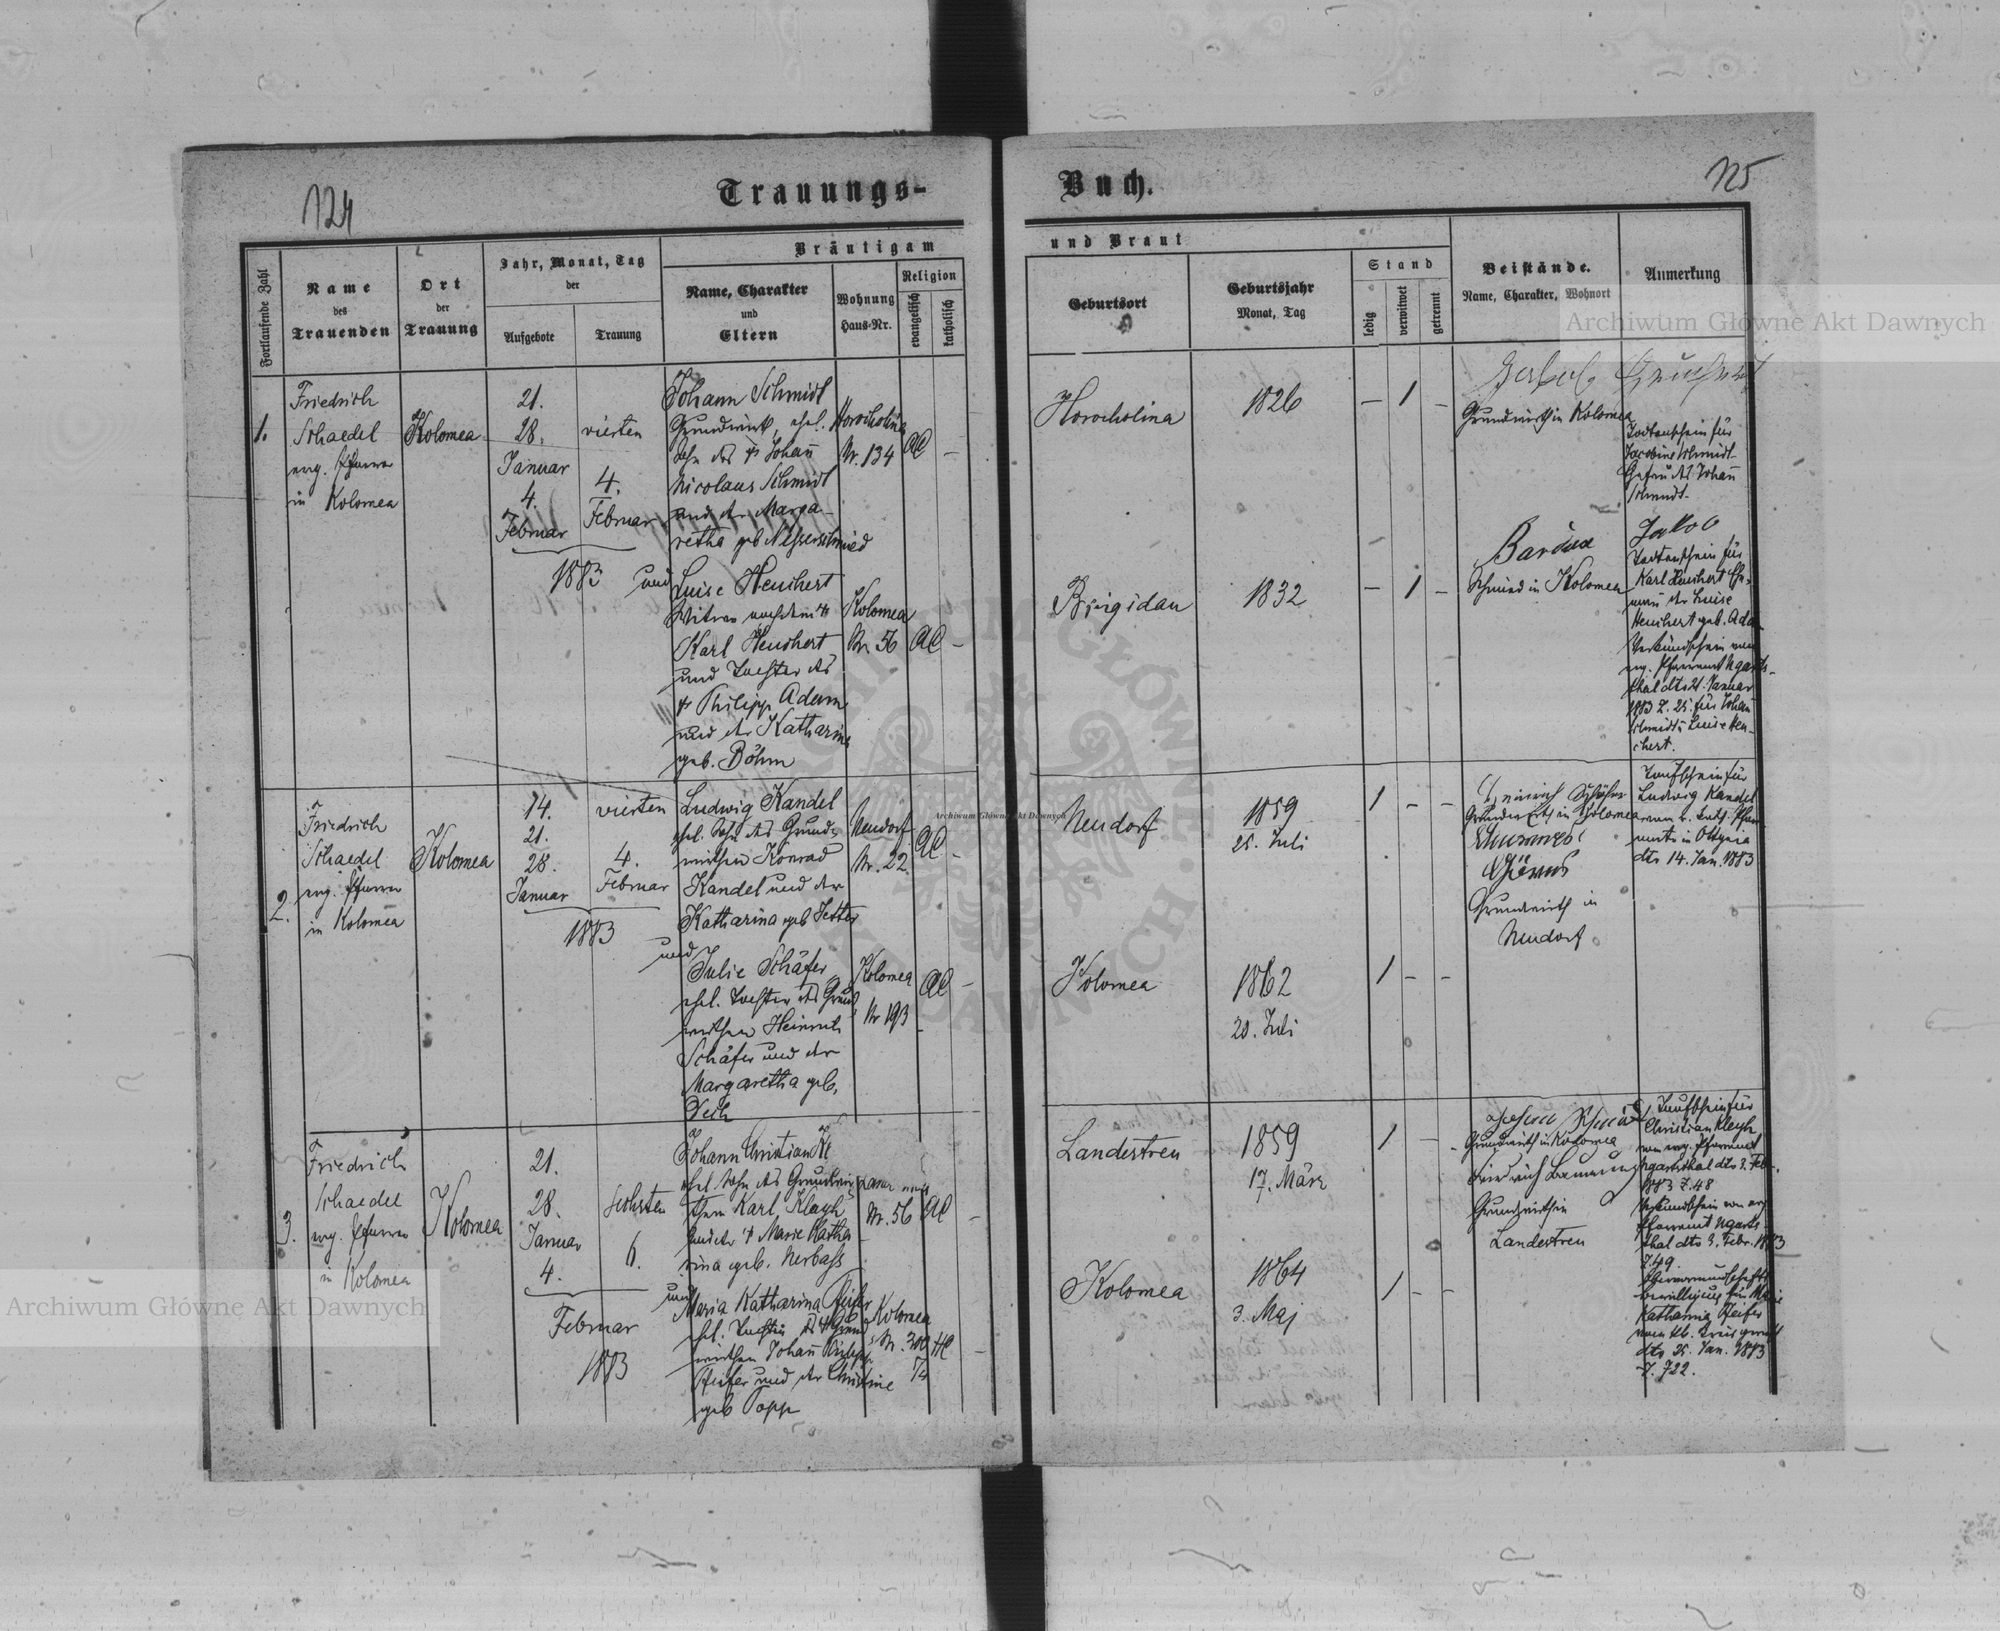 124
Trauungs-
Buch.
125
Fortlaufende Zahl
Name
des
Trauenden
Ort
der
Trauung
Jahr, Monat, Tag
der
Aufgebote
Trauung
Bräutigam
Name, Charakter
und
Eltern
Wohnung
Haus-Nr.
Religion
evangelisch
katholisch
und Braut
Geburtsort
Geburtsjahr
Monat, Tag
Stand
ledig
verwitwet
getrennt
Beistände.
Name, Charakter, Wohnort
Anmerkung
1.
Friedrich
Schaedel
evg. Pfarrer
in Kolomea
Kolomea
21.
28.
Januar
4.
Februar
vierten
4.
Februar
1883
Johann Schmidt
Grundwirt, ehel.
Sohn des † Johann
Nicolaus Schmidt
und der Marga-
retha geb. Messerschmied
Horocholina
Nr. 134
AC
–
und
Luise Heuchert
Witwe nach dem †
Karl Heuchert
und Tochter des
† Philipp Adam
und der Katharina
geb. Böhm
Kolomea
Nr. 56
AC
–
Horocholina
1826
– 1 –
Grundwirth in Kolomea
Todtenschein für
Jacobine Schmidt
Gefrau des Johann
Schmidt.
Brigidau
1832
– 1 –
Jakob
Schmied in Kolomea
Todtenschein für
Karl Heuchert Ehe-
mann der Luise
Heuchert geb. Adam
Verkündschein vom
evg. Pfarramt Ugarts-
thal dto 21. Januar
1883 Z. 25. für Johann
Schmidt u. Luise Heu-
chert.
2.
Friedrich
Schaedel
evg. Pfarrer
in Kolomea
Kolomea
14.
21.
28.
Januar
vierten
4.
Februar
1883
Ludwig Kandel
ehel. Sohn des Grund-
wirthen Konrad
Kandel und der
Katharina geb. Jetter
Neudorf
Nr. 22.
AC
–
und
Julie Schäfer
ehel. Tochter des Grund-
wirthen Heinrich
Schäfer und der
Margaretha geb.
Kolomea
Nr 193
AC
–
Neudorf
1859
25. Juli
1 – –
Heinrich Schäfer
Grundwirth in Kolomea
Grundwirth in
Neudorf
Taufschein für
Ludwig Kandel
vom
in Ottynia
dto 14. Jan. 1883
Kolomea
1862
20. Juli
1 – –
3.
Friedrich
Schaedel
evg. Pfarrer
in Kolomea
Kolomea
21.
28.
Januar
4.
Februar
1883
sechsten
6.
Johann Christian
ehel. Sohn des Grundwir-
then Karl Kleyh
und der † Marie Katha-
rina geb. Nerbass
Nr. 56
AC
–
und
Maria Katharina Pfeifer
ehel. Tochter des † Grund-
wirthen Johann Philipp
Pfeifer und der Christine
geb. Popp
Kolomea
–
Landestreu
1859
17. März
1 –
Grundwirth in Kolomea
Grundwirth in
Landestreu
Taufschein für
Christian Kleyh
vom evg. Pfarramt
Ugartsthal dto 3. Feb.
1883 Z. 48
Verkündschein vom evg.
Pfarramt Ugarts-
thal dto 3. Febr. 1883
Z. 49.
Obervormundschafts-
bewilligung für Marie
Katharina Pfeifer
vom kk. Kreisgericht
dto 25. Jan. 1883
Z. 722.
Kolomea
1864
3. Maj
1 – –
Archiwum Główne Akt Dawnych
Archiwum Główne Akt Dawnych
Archiwum Główne Akt Dawnych